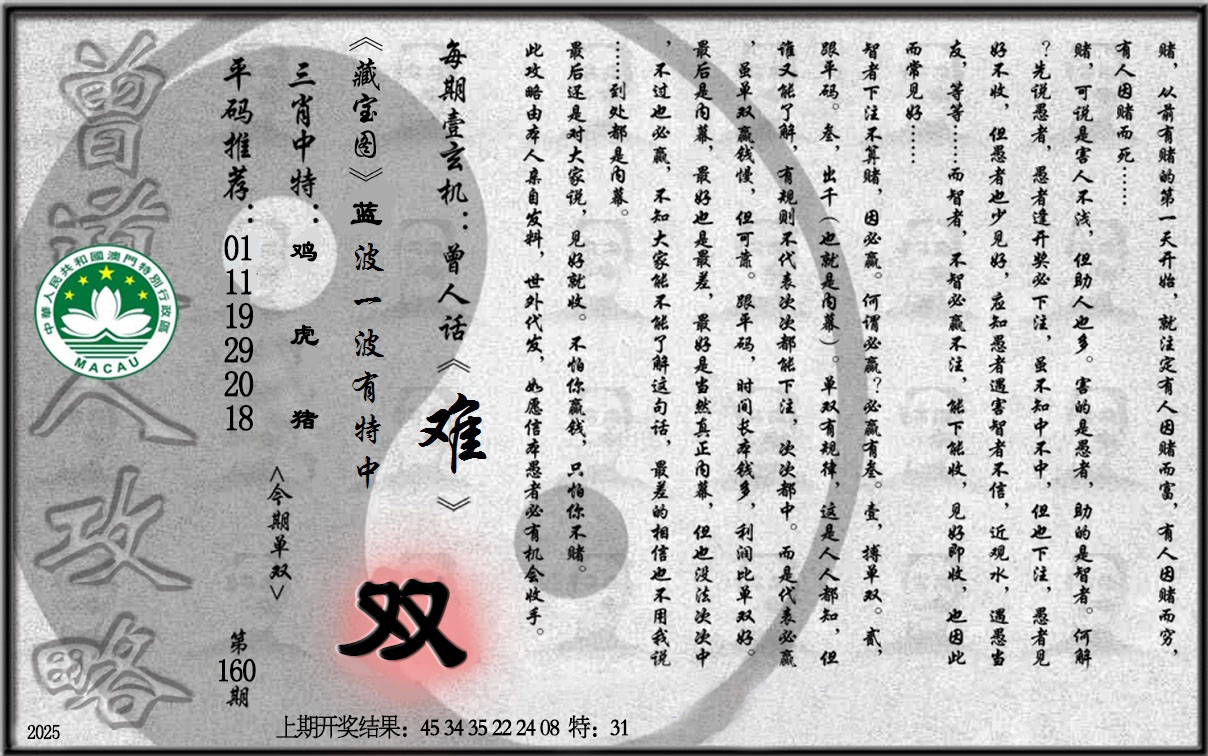 赌，从前有赌的第一天开始，就注定有人因赌而富，有人因赌而穷，
有人因赌而死……
赌，可说是害人不浅，但助人也多。害的是愚者，助的是智者。何解
？先说愚者，愚者逢开奖必下注，虽不知中不中，但也下注，愚者见
好不收，但愚者也少见好，应知愚者遇害智者不信，近观水，遇愚当
友，等等……而智者，不智必赢不注，能下能收，见好即收，也因此
而常见好……
智者下注不算赌，因必赢。何谓必赢？必赢有叁。壹，搏单双。贰，
跟平码。叁，出千（也就是内幕）。单双有规律，这是人人都知，但
谁又能了解，有规则不代表次次都能下注，次次都中。而是代表必赢
，虽单双赢钱慢，但可靠。跟平码，时间长本钱多，利润比单双好。
最后是内幕，最好也是最差，最好是当然真正内幕，但也没法次次中
，不过也必赢，不知大家能不能了解这句话，最差的相信也不用我说
……到处都是内幕。
最后还是对大家说，见好就收。不怕你赢钱，只怕你不赌。
此攻略由本人亲自发料，世外代发，如愿信本愚者必有机会收手。
每期壹玄机：曾人话《难》
《藏宝图》蓝波一波有特中
双
三肖中特：鸡虎猪
<今期单双>
平码推荐：01 11 19 29 20 18
第160期
曾道人攻略
中華人民共和國澳門特別行政區
MACAU
2025
上期开奖结果：45 34 35 22 24 08 特：31